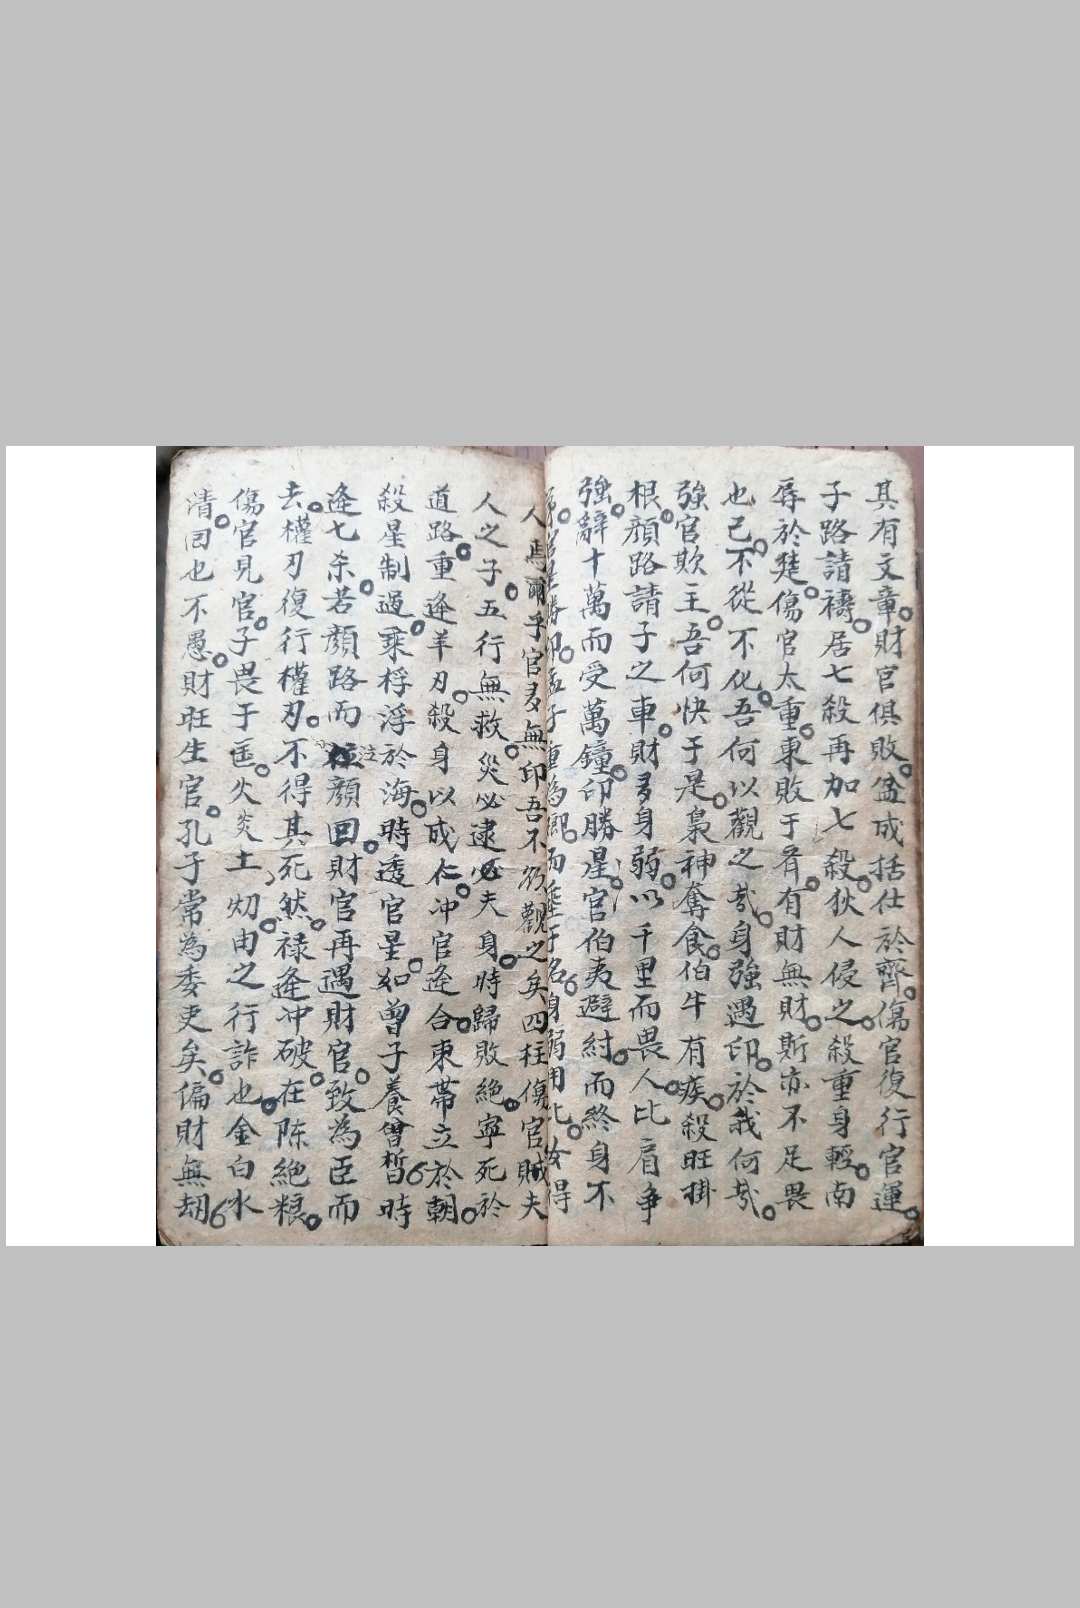 其有文章財官俱敗盆成括仕於齊傷官復行官運
子路請禱居七殺再加七殺狄人侵之殺重身輕南
辱於楚傷官太重東敗于有財無財斯亦不足畏
也已不從不化吾何以觀之哉身強遇印於我何哉
強官欺主吾何快于是梟神奪食伯牛有疾殺旺掛
根顔路請子之車財多身弱以千里而畏人比肩爭
強辭十萬而受萬鐘印勝星官伯夷避紂而終身不
人焉爾乎官多無印吾不欲觀之矣四柱傷官賊夫
人之子五行無救災必逮夫身時歸敗絶寧死於
道路重逢羊刃殺身以成仁冲官逢合束帶立於朝
殺星制過乘桴浮於海時透官星如曾子養曾晳時
逢七杀若顔路而泣顔回財官再遇財官致為臣而
去權刃復行權刃不得其死然禄逢冲破在陈絶粮
傷官見官子畏于匡火炎土由之行詐也金白水
清回也不愚財旺生官孔子常為委吏矣偏財無刼